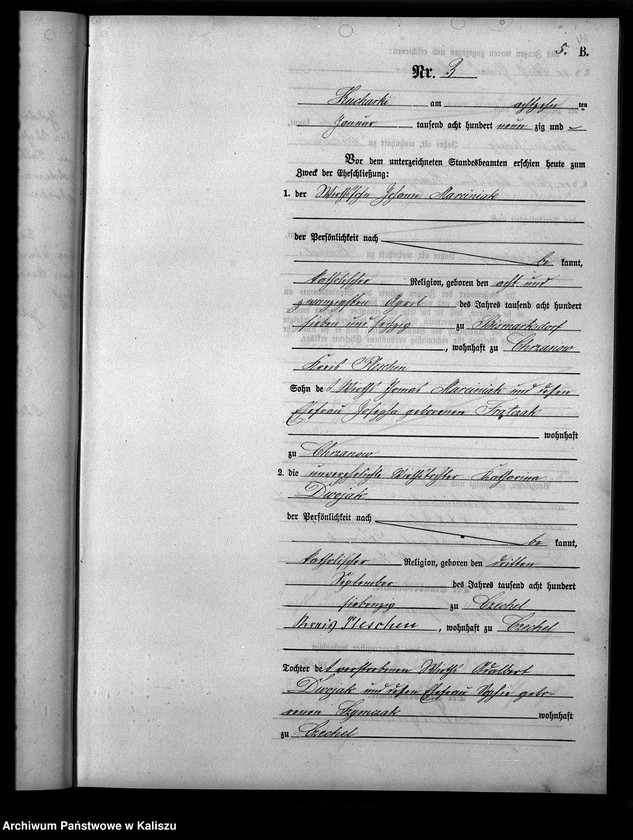 5. B.
Nr. 3
Kucharki am achtzehn ten
Januar tausend acht hundert neun zig und
Vor dem unterzeichneten Standesbeamten erschien heute zum
Zweck der Eheschließung:
1. der Wirthssohn Johann Marciniak
der Persönlichkeit nach
be kannt,
katholischer Religion, geboren den acht und
zwanzigsten April des Jahres tausend acht hundert
sieben und sechzig zu Bismarksdorf
, wohnhaft zu Chrzanow
Kreis Pleschen
Sohn des Wirths Tomas Marciniak und dessen
Ehefrau Josepha geborenen
wohnhaft
zu Chrzanow
2. die unverehelichte Wirthstochter Katharina
Duojak
der Persönlichkeit nach
be kannt,
katholischer Religion, geboren den dritten
September des Jahres tausend acht hundert
siebenzig zu Czechel
Kreis Pleschen, wohnhaft zu Czechel
Tochter des verstorbenen Wirths Adalbert
Duojak und dessen Ehefrau Sophie gebo-
renen Szymczak wohnhaft
zu Czechel
Archiwum Państwowe w Kaliszu